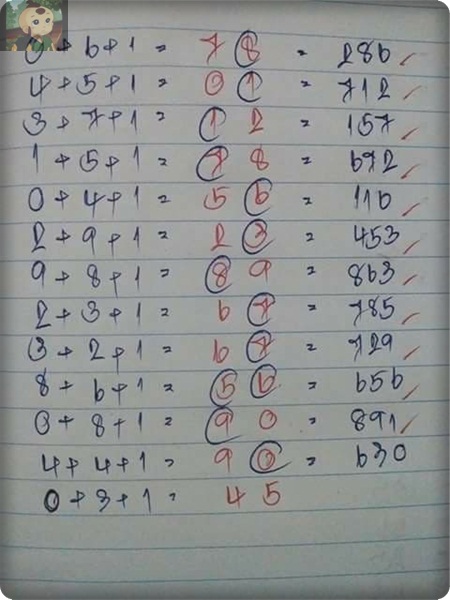 0 + 6 + 1 = 7 8 = 286
4 + 5 + 1 = 0 1 = 712
3 + 7 + 1 = 1 2 = 157
1 + 5 + 1 = 7 8 = 672
0 + 4 + 1 = 5 6 = 116
2 + 9 + 1 = 2 3 = 453
9 + 8 + 1 = 8 9 = 863
2 + 3 + 1 = 6 7 = 785
3 + 2 + 1 = 6 7 = 729
8 + 6 + 1 = 5 6 = 656
0 + 8 + 1 = 9 0 = 891
4 + 4 + 1 = 9 0 = 630
0 + 3 + 1 = 4 5